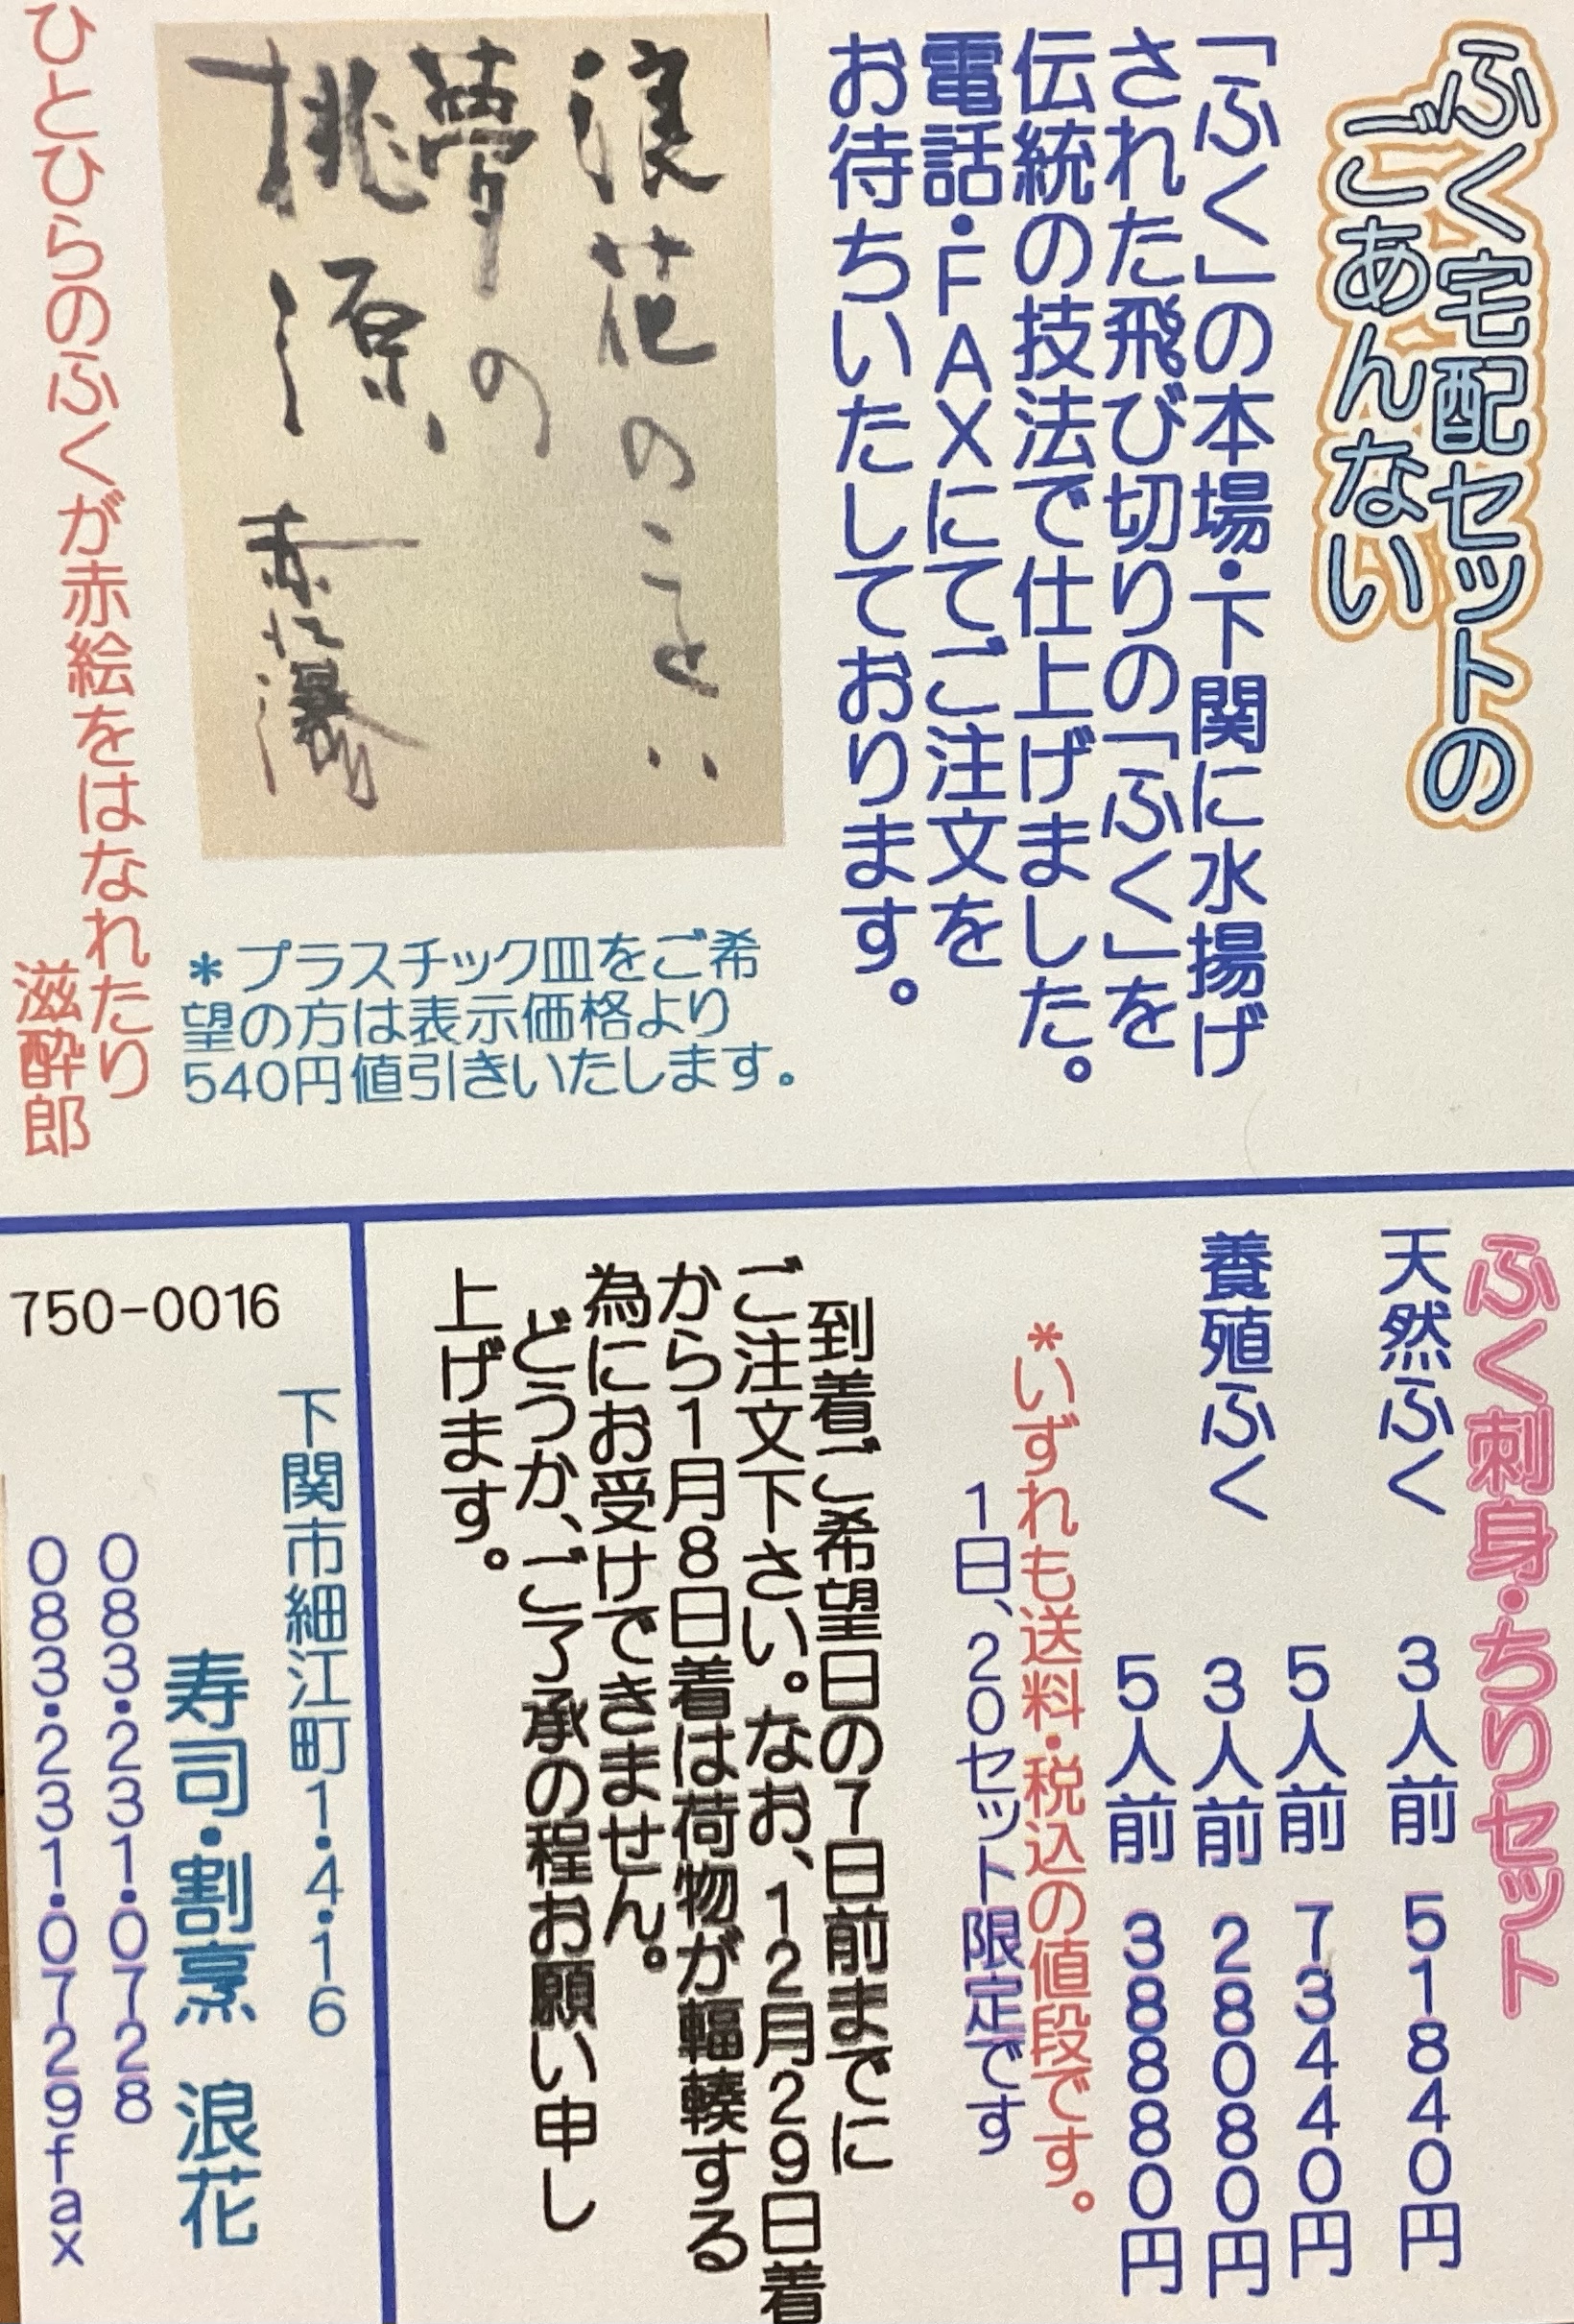 ふく宅配セットの
ごあんない
「ふく」の本場・下関に水揚げ
された飛び切りの「ふく」を
伝統の技法で仕上げました。
電話・FAXにてご注文を
お待ちいたしております。
浪花の
夢の
桃源、
赤瀑
＊プラスチック皿をご希
望の方は表示価格より
540円値引きいたします。
ひとひらのふくが赤絵をはなれたり
滋酔郎
ふく刺身・ちりセット
天然ふく 3人前 51840円
5人前 73440円
養殖ふく 3人前 28080円
5人前 38880円
＊いずれも送料・税込の値段です。
1日、20セット限定です
到着ご希望日の7日前までに
ご注文下さい。なお、12月29日着
から1月8日着は荷物が輻輳する
為にお受けできません。
どうか、ご了承の程お願い申し
上げます。
750-0016
下関市細江町1・4・16
寿司・割烹 浪花
083・231・0728
083・231・0729fax